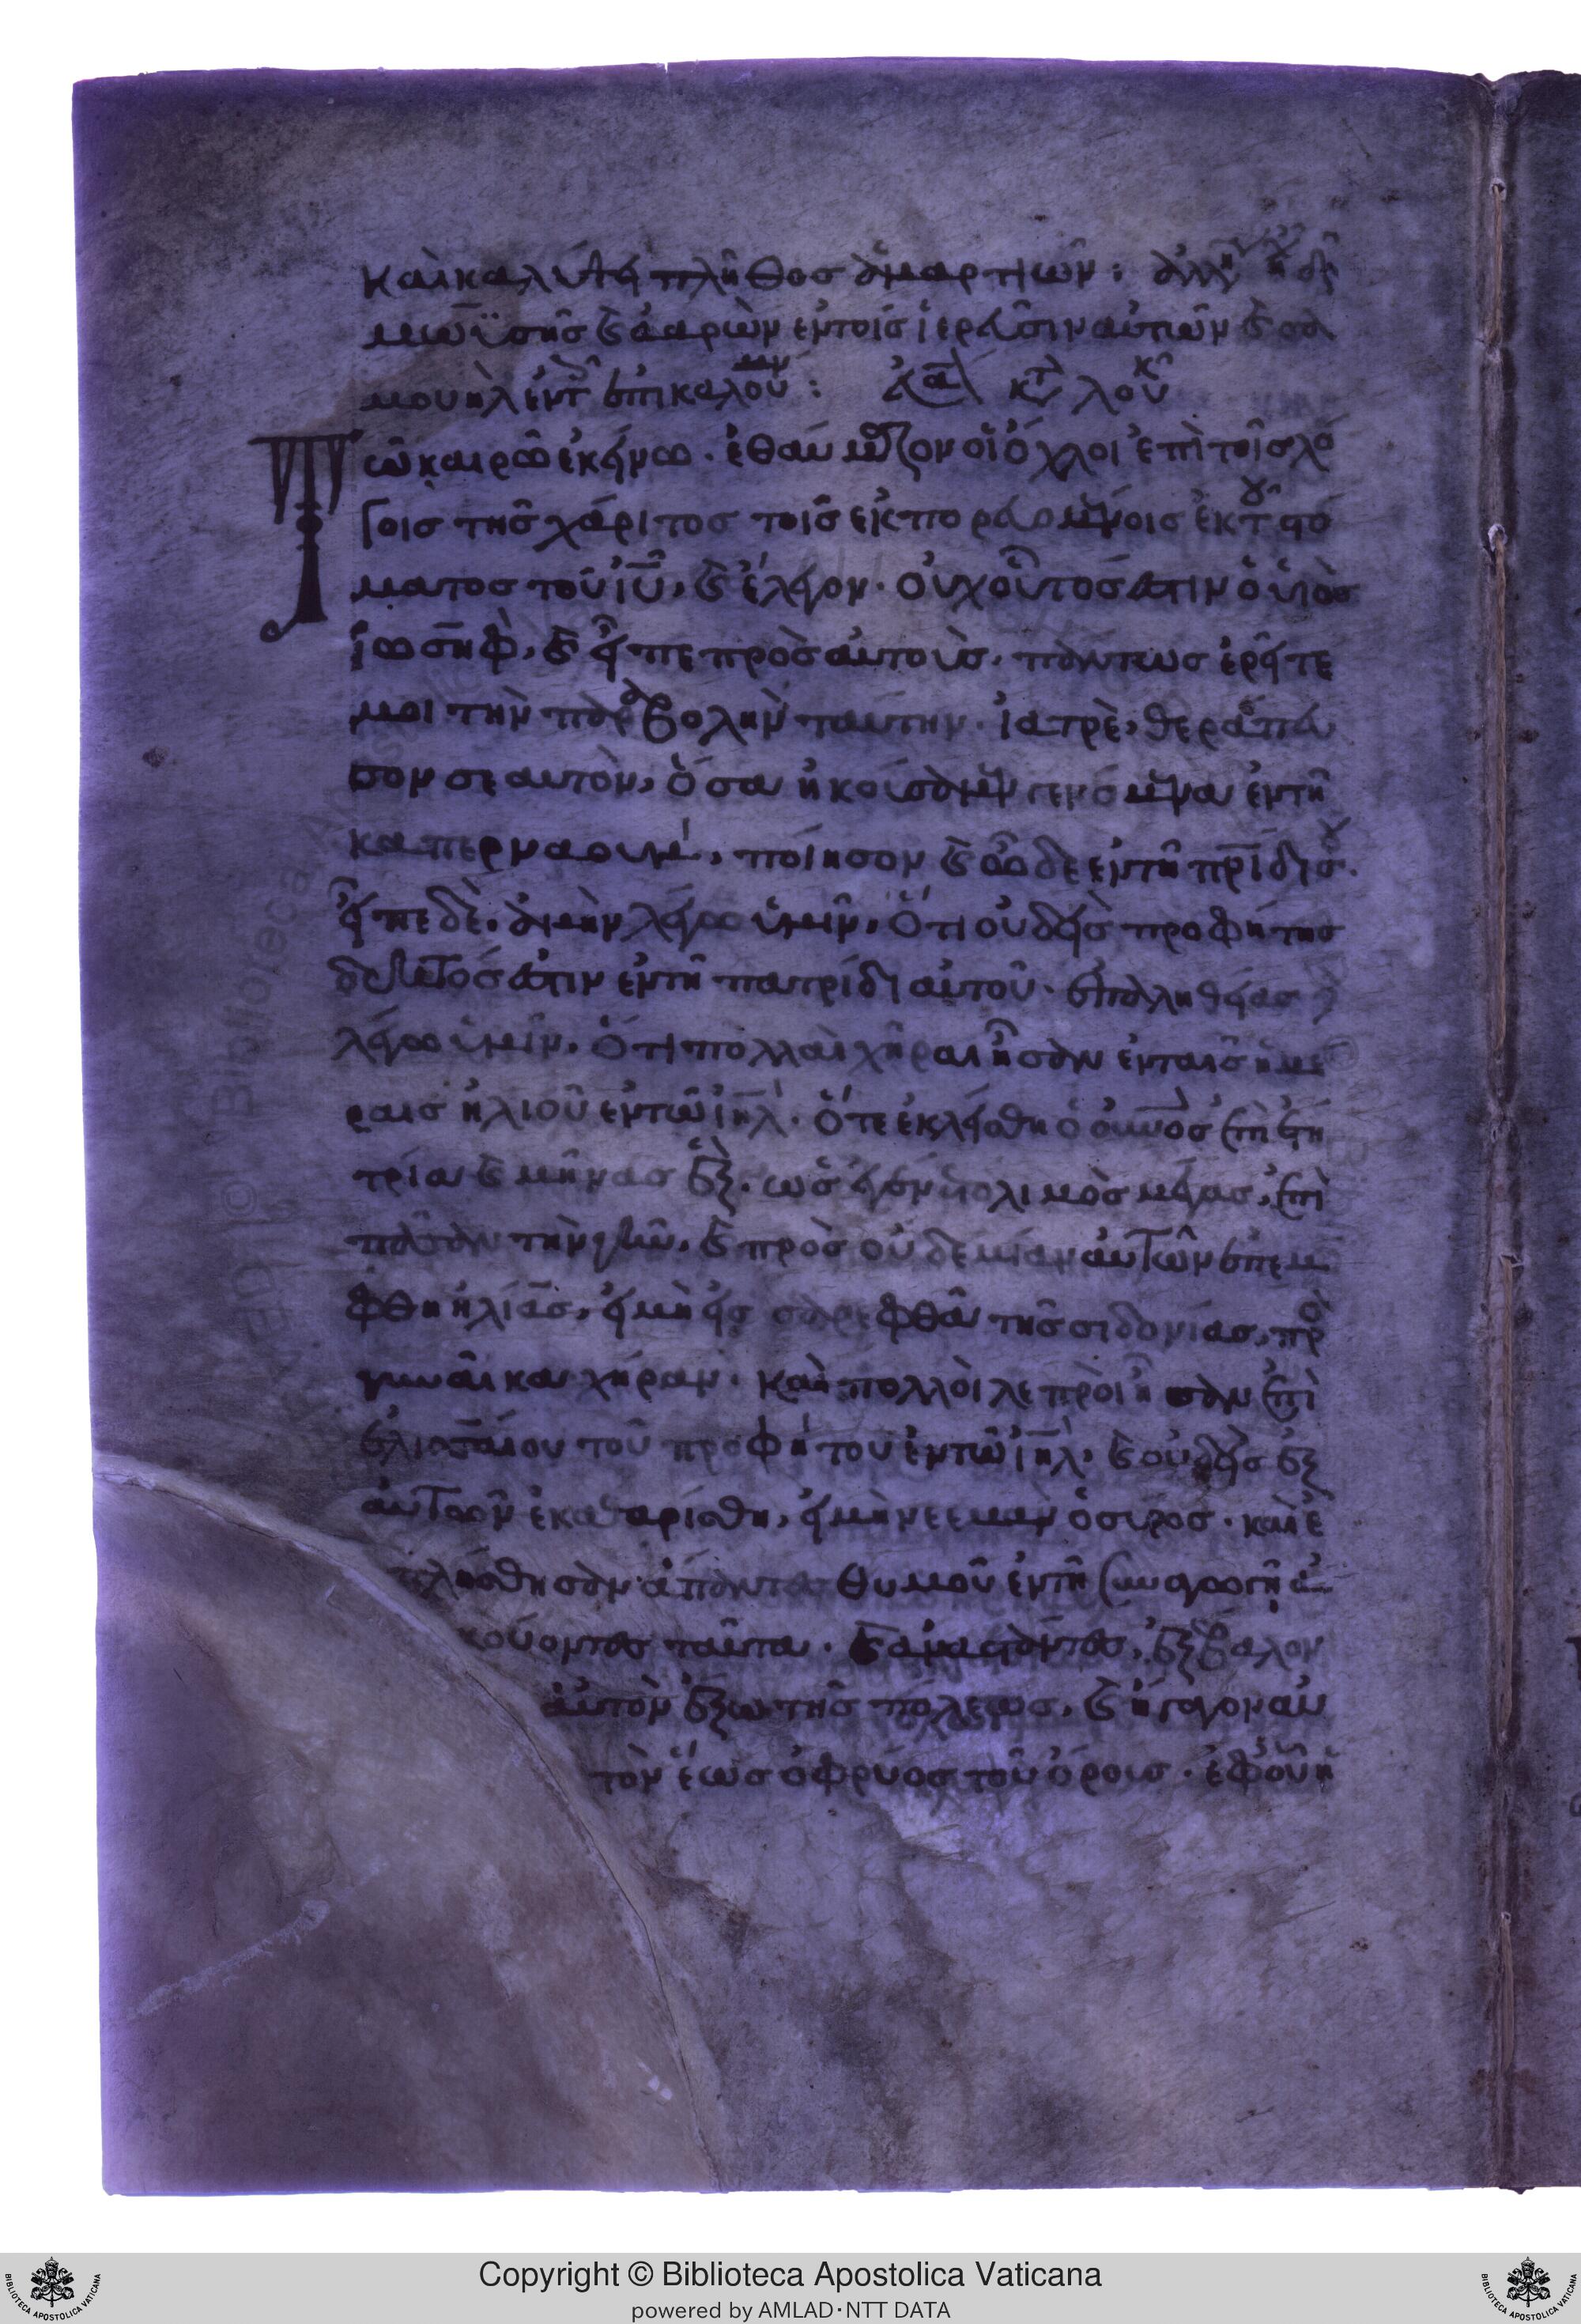 καὶ καλύψει πλῆθος ἁμαρτιῶν:
μωϋσῆς καὶ ἀαρὼν ἐν τοῖς ἱερεῦσιν αὐτῶν καὶ σα
μουὴλ ἐν τ ἐπικαλου: κτ λουκ
Τῶ καιρῶ ἐκείνω. ἐθαύμαζον οἱ ὄχλοι ἐπὶ τοῖς λό
γοις τῆς χάριτος τοῖς ἐκπορευομένοις ἐκ τοῦ στό
ματος τοῦ ιυ, καὶ ἔλεγον. οὐχ οὗτός ἐστιν ὁ υἱὸς
ἰωσὴφ, καὶ εἶπε πρὸς αὐτοὺς. πάντως ἐρεῖτέ
μοι τὴν παραβολὴν ταύτην. ἰατρὲ, θεράπευ
σον σεαυτὸν, ὅσα ἠκούσαμεν γενόμενα ἐν τῆ
καπερναουμ, ποίησον καὶ ὧδε ἐν τῆ πρίδι σου.
εἶπε δὲ. ἀμὴν λέγω ὑμῖν, ὅτι οὐδεὶς προφήτης
δεκτός ἐστιν ἐν τῆ πατρίδι αὐτοῦ. ἐπ' ἀληθείας
λέγω ὑμῖν. ὅτι πολλαὶ χῆραι ἦσαν ἐν ταῖς ἡμέ
ραις ἠλιοῦ ἐν τῶ ιηλ. ὅτε ἐκλείσθη ὁ ουνος ἐπὶ ἔτη
τρία καὶ μῆνας ἓξ. ὡς ἐγένετο λιμὸς μέγας, ἐπὶ
πᾶσαν τὴν γῆν, καὶ πρὸς οὐδεμίαν αὐτῶν ἐπέμ
φθη ἠλίας, εἰ μὴ εἰς σάρεφθα τῆς σιδονίας, πρ
γυναῖκα χήραν. καὶ πολλοὶ λεπροὶ ἦσαν ἐπὶ
ἐλισσαίου τοῦ προφήτου ἐν τῶ ιηλ, καὶ οὐδεὶς ἐξ
αὐτῶν ἐκαθαρίσθη, εἰ μὴ νεεμὰν ὁ σύρος. καὶ ἐ
πλήσθησαν ἅπαντες θυμοῦ ἐν τῆ συναγωγῆ ἀ
κούοντες ταῦτα. καὶ ἀναστάντες, ἐξέβαλον
αὐτὸν ἔξω τῆς πόλεως, καὶ ἤγαγον αὐ
τὸν ἕως ὀφρύος τοῦ ὄρους. ἐφ' οὗ ἡ
Copyright © Biblioteca Apostolica Vaticana
powered by AMLAD·NTT DATA